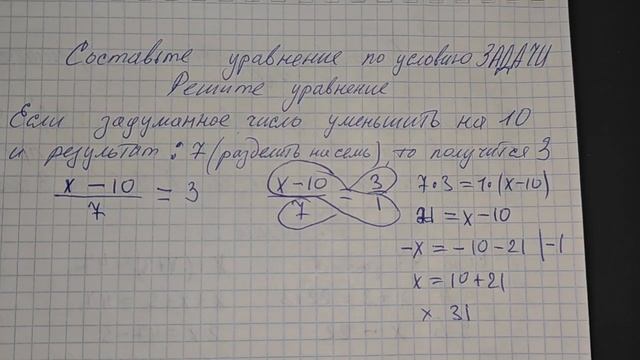 Составьте уравнение по условию ЗАДАЧИ
Решите уравнение
Если задуманное число уменьшить на 10
и результат : 7 (разделить на семь), то получится 3
x – 10
7
= 3
x–10
7
=
3
1
7·3 = 1·(x–10)
21 = x–10
–x = –10–21 |–1
x = 10+21
x 31